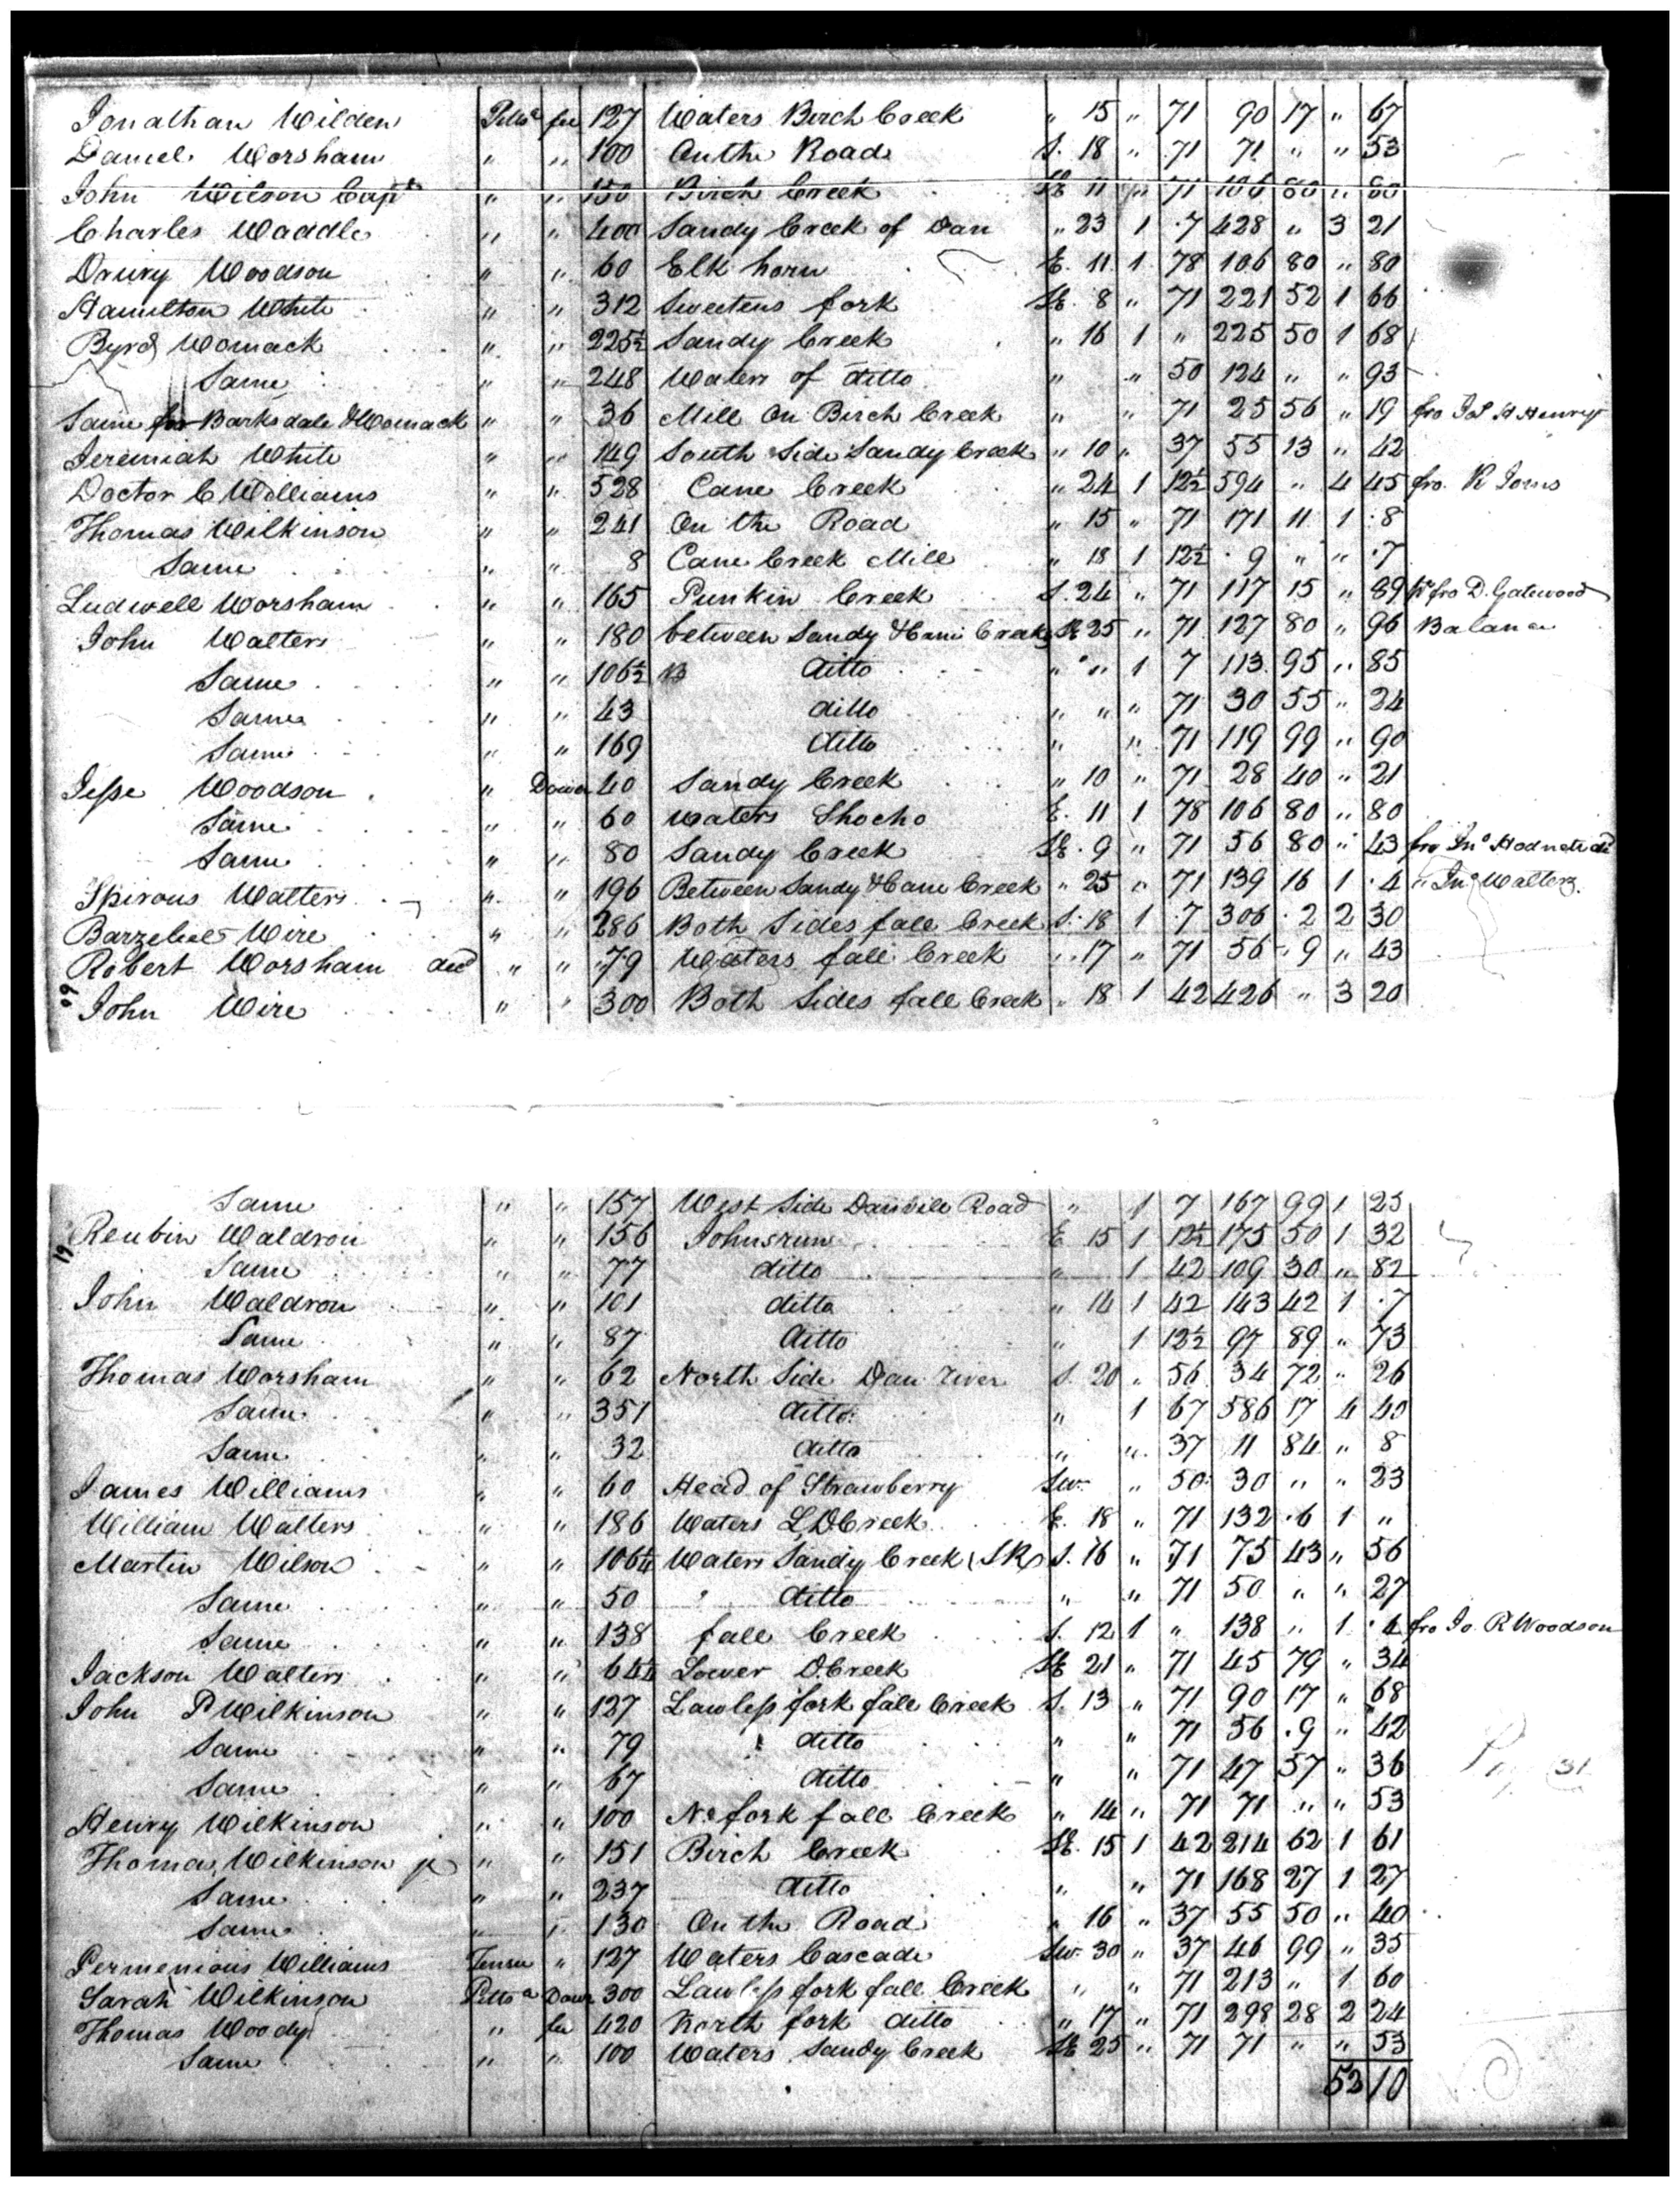 Jonathan Wilden Pittsa fee 127 Waters Birch Creek " 15 " 71 90 17 " 67
Daniel Worsham " " 100 On the Road S. 18 " 71 71 " " 53
John Wilson Capt " " 150 Birch Creek SE 11 " 71 106 80 " 80
Charles Waddle " " 400 Sandy Creek of Dan " 23 1 .7 428 " 3 21
Drury Woodson " " 60 Elk horn E. 11 1 78 106 80 " 80
Hamilton White " " 312 Sweetens fork SE. 8 " 71 221 52 1 66
Byrd Womack " " 225½ Sandy Creek " 16 1 " 225 50 1 68
Same " " 248 Waters of ditto " " 50 124 " " 93
Same for Barksdale & Womack " " 36 Mill On Birch Creek " " 71 25 56 " 19 fro H Henry
Jeremiah White " " 149 South Side Sandy Creek " 10 " 37 55 13 " 42
Doctor C Williams " " 528 Cane Creek " 24 1 12½ 594 " 4 45 fro. R
Thomas Wilkinson " " 241 On the Road " 15 " 71 171 11 1 .8
Same " " 8 Cane Creek Mill " 18 1 12½ . 9 " " .7
Ludwell Worsham " " 165 Punkin Creek S. 24 " 71 117 15 " 89 fro D. Gatewood
John Walters " " 180 between Sandy & Cane Creek SE 25 " 71 127 80 " 96 Balance
Same " " 106½ ditto " " 1 7 113 95 " 85
Same " " 43 ditto " " " 71 30 55 " 24
Same " " 169 ditto " " 71 119 99 " 90
Jesse Woodson " Dower 40 Sandy Creek " 10 " 71 28 40 " 21
Same " " 60 Waters Shocho E. 11 1 78 106 80 " 80
Same " " 80 Sandy Creek SE. 9 " 71 56 80 " 43 fro Jno Hodnett
Spirous Walters " " 196 Between Sandy & Cane Creek " 25 " 71 139 16 1 .4 " Jno Walters
Barzeliel Wire " " 286 Both Sides fall Creek S. 18 1 .7 306 .2 2 30
Robert Worsham decd " " 79 Waters fall Creek " 17 " 71 56 .9 " 43
60 John Wire " " 300 Both Sides fall Creek " 18 1 42 426 " 3 20
Same " " 157 West Side Danvile Road " 1 7 167 99 1 25
61 Reubin Waldron " " 156 Johnsrun E 15 1 12½ 175 50 1 32
Same " " 77 ditto " 1 42 109 30 " 82
John Waldron " " 101 ditto " 14 1 42 143 42 1 .7
Same " " 87 ditto " 1 12½ 97 89 " 73
Thomas Worsham " " 62 North Side Dan River S. 20 " 56 34 72 " 26
Same " " 351 ditto " 1 67 586 17 4 40
Same " " 32 ditto " " 37 11 84 " 8
James Williams " " 60 Head of Strawberry Sw. " 50 30 " " 23
William Walters " " 186 Waters L D Creek E. 18 " 71 132 .6 1 "
Martin Wilson " " 106¼ Waters Sandy Creek (SR) S. 16 " 71 75 43 " 56
Same " " 50 ditto " " 71 50 " " 27
Same " " 138 fall Creek S. 12 1 " 138 " 1 .4 fro Jo. R Woodson
Jackson Walters " " 64½ Lower D. Creek SE 21 " 71 45 79 " 34
John P Wilkinson " " 127 Lawless fork fall Creek S. 13 " 71 90 17 " 68
Same " " 79 ditto " " 71 56 .9 " 42
Same " " 67 ditto " " 71 47 57 " 36
31
Henry Wilkinson " " 100 No fork fall Creek " 14 " 71 71 " " 53
Thomas Wilkinson jr " " 151 Birch Creek SE. 15 1 42 214 62 1 61
Same " " 237 ditto " " 71 168 27 1 27
Same " " 130 On the Road " 16 " 37 55 50 " 40
Permenious Williams Tensee " 127 Waters Cascade Sw. 30 " 37 46 99 " 35
Sarah Wilkinson Pittsa Dower 300 Lawless fork fall Creek " " 71 213 " 1 60
Thomas Woody " fee 420 North fork ditto " 17 " 71 298 28 2 24
Same " " 100 Waters Sandy Creek SE 25 " 71 71 " " 53
53 10